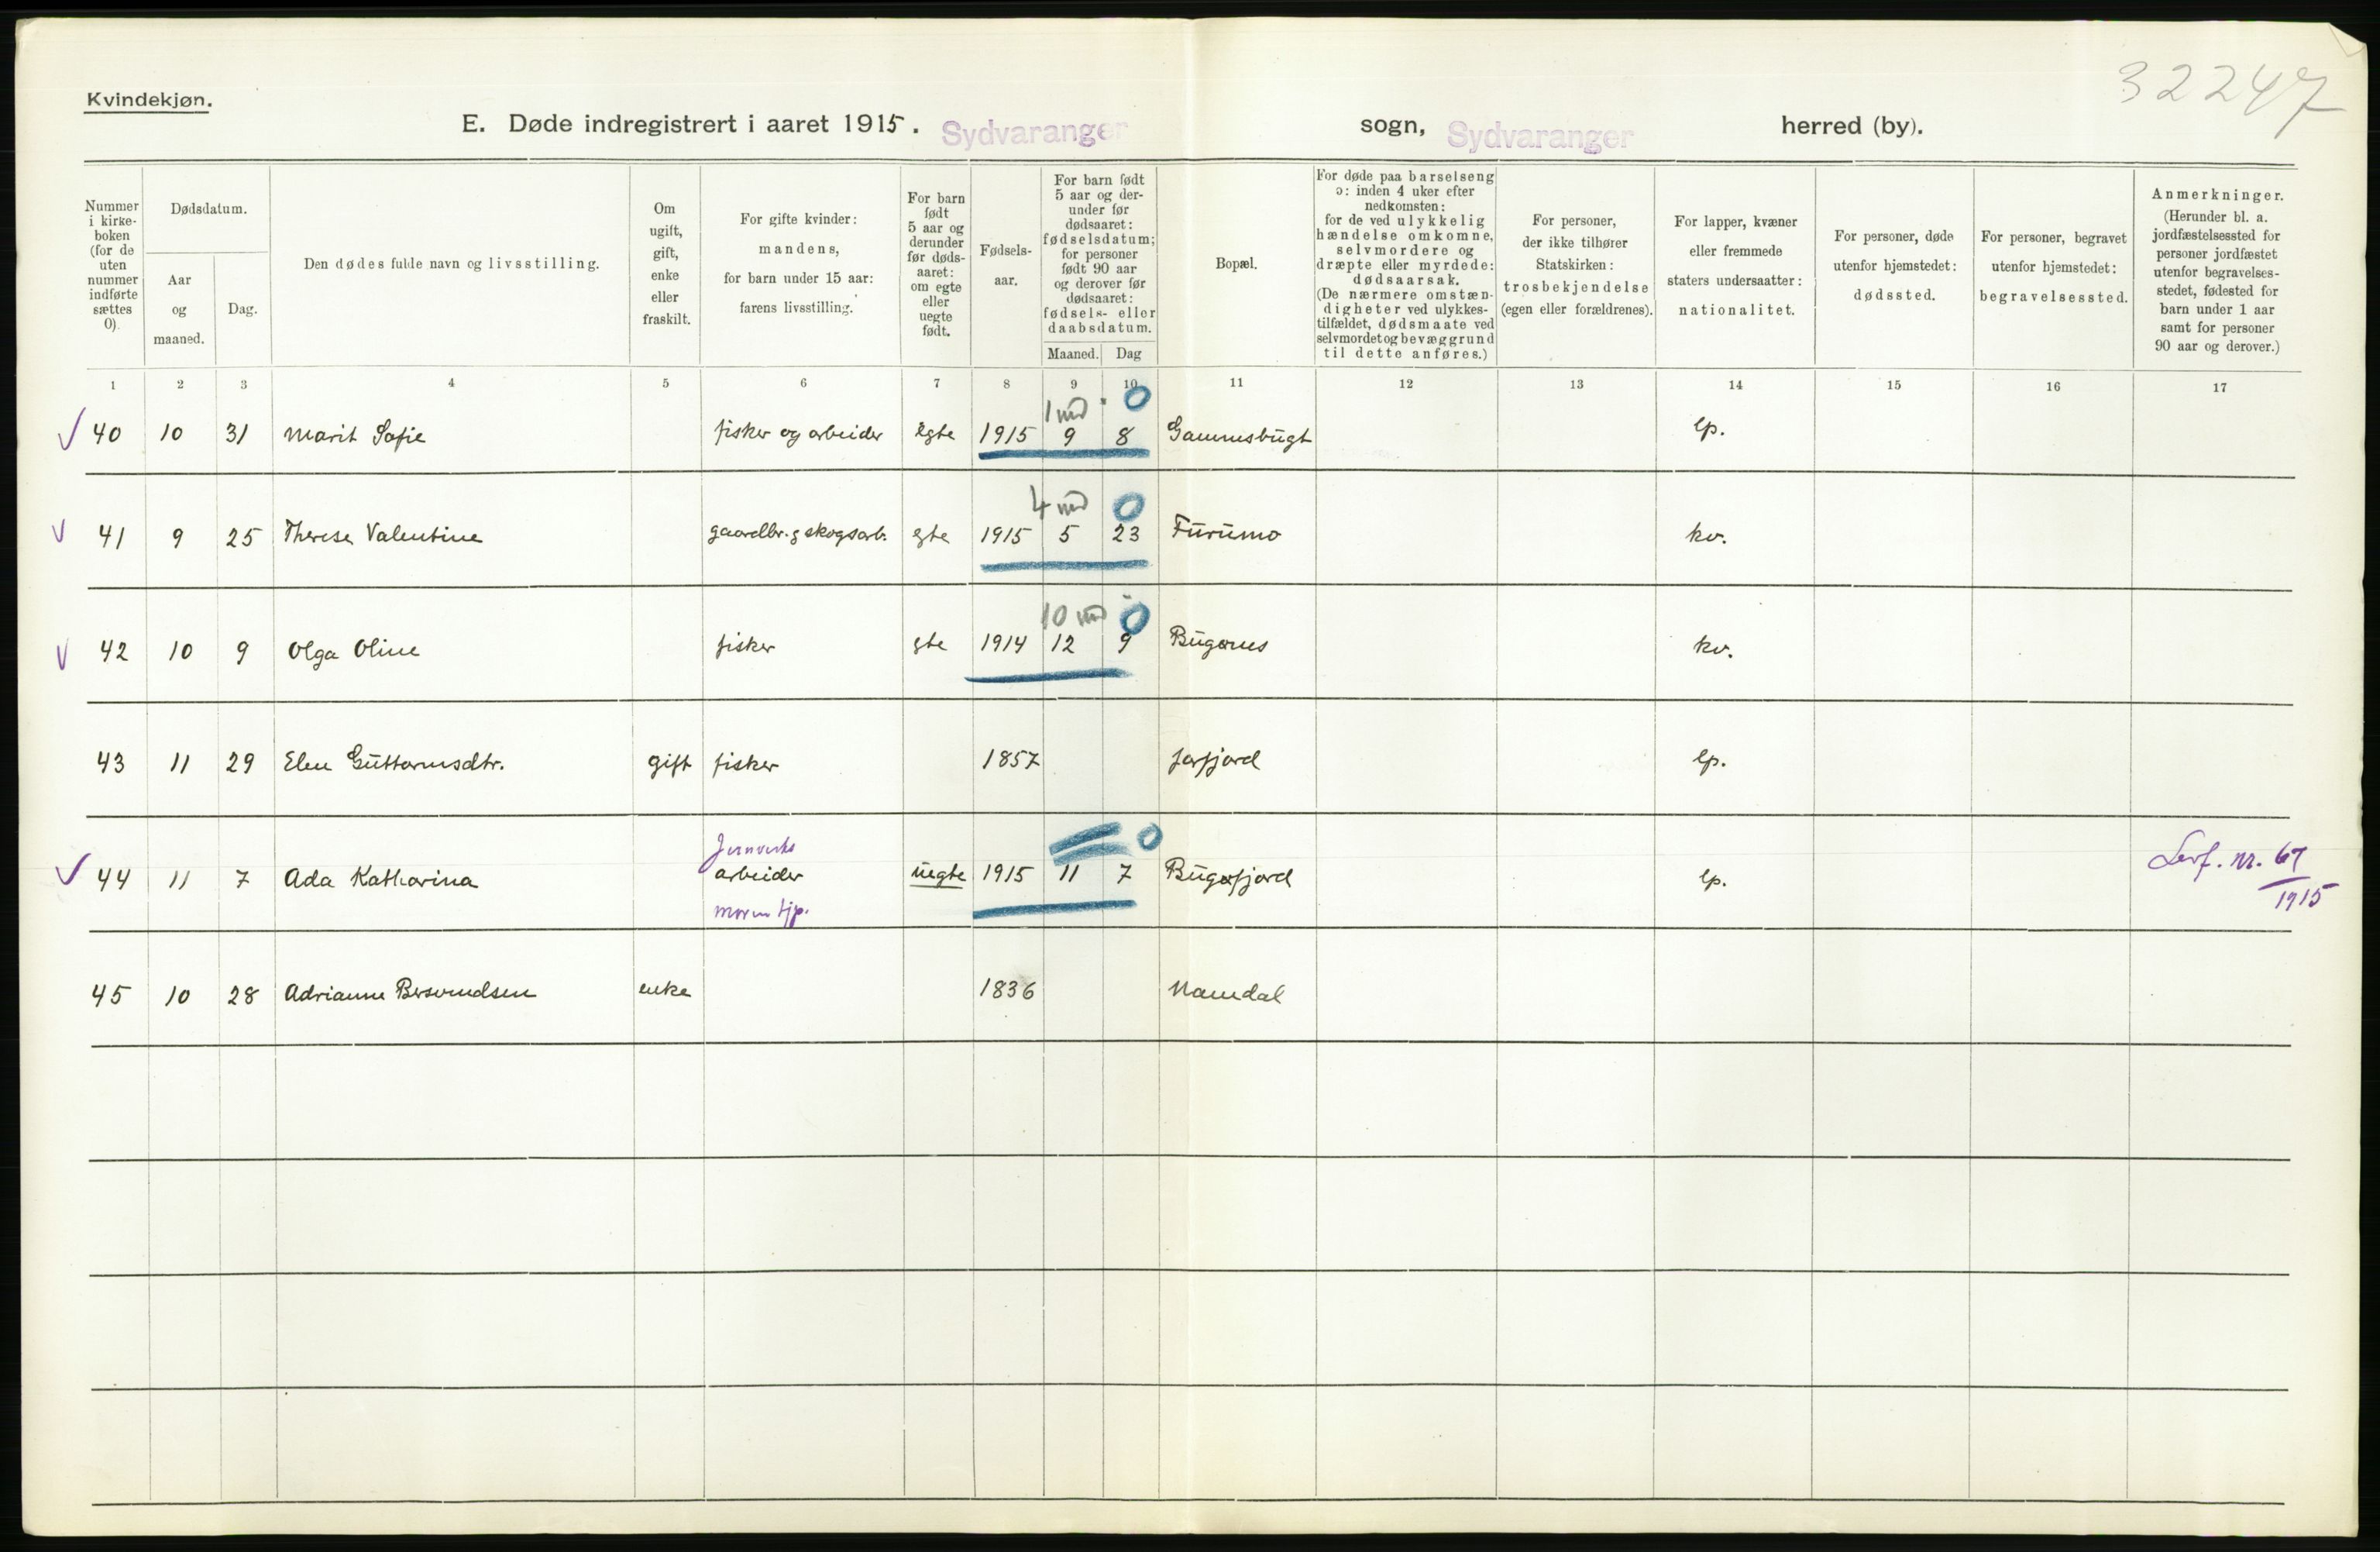 Kvindekjøn.
32247
E. Døde indregistrert i aaret 1915. Sydvaranger sogn, Sydvaranger herred (by).
Nummer i kirke-boken (for de uten nummer indførte sættes 0).
Dødsdatum.
Aar og maaned.
Dag.
Den dødes fulde navn og livsstilling.
Om ugift, gift, enke eller fraskilt.
For gifte kvinder: mandens, for barn under 15 aar: farens livsstilling.
For barn født 5 aar og derunder før døds-aaret: om egte eller uegte født.
Fødsels-aar.
For barn født 5 aar og der-under før dødsaaret: fødselsdatum; for personer født 90 aar og derover før dødsaaret: fødsels- eller daabsdatum.
Maaned. Dag
Bopæl.
For døde paa barselseng ɔ: inden 4 uker efter nedkomsten: for de ved ulykkelig hændelse omkomne, selvmordere og dræpte eller myrdede: dødsaarsak. (De nærmere omstæn-digheter ved ulykkes-tilfældet, dødsmaate ved selvmordet og bevæggrund til dette anføres.)
For personer, der ikke tilhører Statskirken: trosbekjendelse (egen eller forældrenes).
For lapper, kvæner eller fremmede staters undersaatter: nationalitet.
For personer, døde utenfor hjemstedet: dødssted.
For personer, begravet utenfor hjemstedet: begravelsessted.
Anmerkninger. (Herunder bl. a. jordfæstelsessted for personer jordfæstet utenfor begravelses-stedet, fødested for barn under 1 aar samt for personer 90 aar og derover.)
1 2 3 4 5 6 7 8 9 10 11 12 13 14 15 16 17
1 md 0
40 10 31 Marit Sofie fisker og arbeider egte 1915 9 8 Gammsbugt lp.
4 md 0
41 9 25 Therese Valentine gaardbr. g skogsarb. egte 1915 5 23 Furumo kv.
10 md 0
42 10 9 Olga Oline fisker gte 1914 12 9 Bugønes kv.
43 11 29 Elen Guttormsdtr. gift fisker 1857 Jarfjord lp.
Jernverks 0
44 11 7 Ada Katharina arbeider uegte 1915 11 7 Bugøfjord lp. Levf. nr. 67
moren tjp. 1915
45 10 28 Adrianne Bersvendsen enke 1836 Namdal